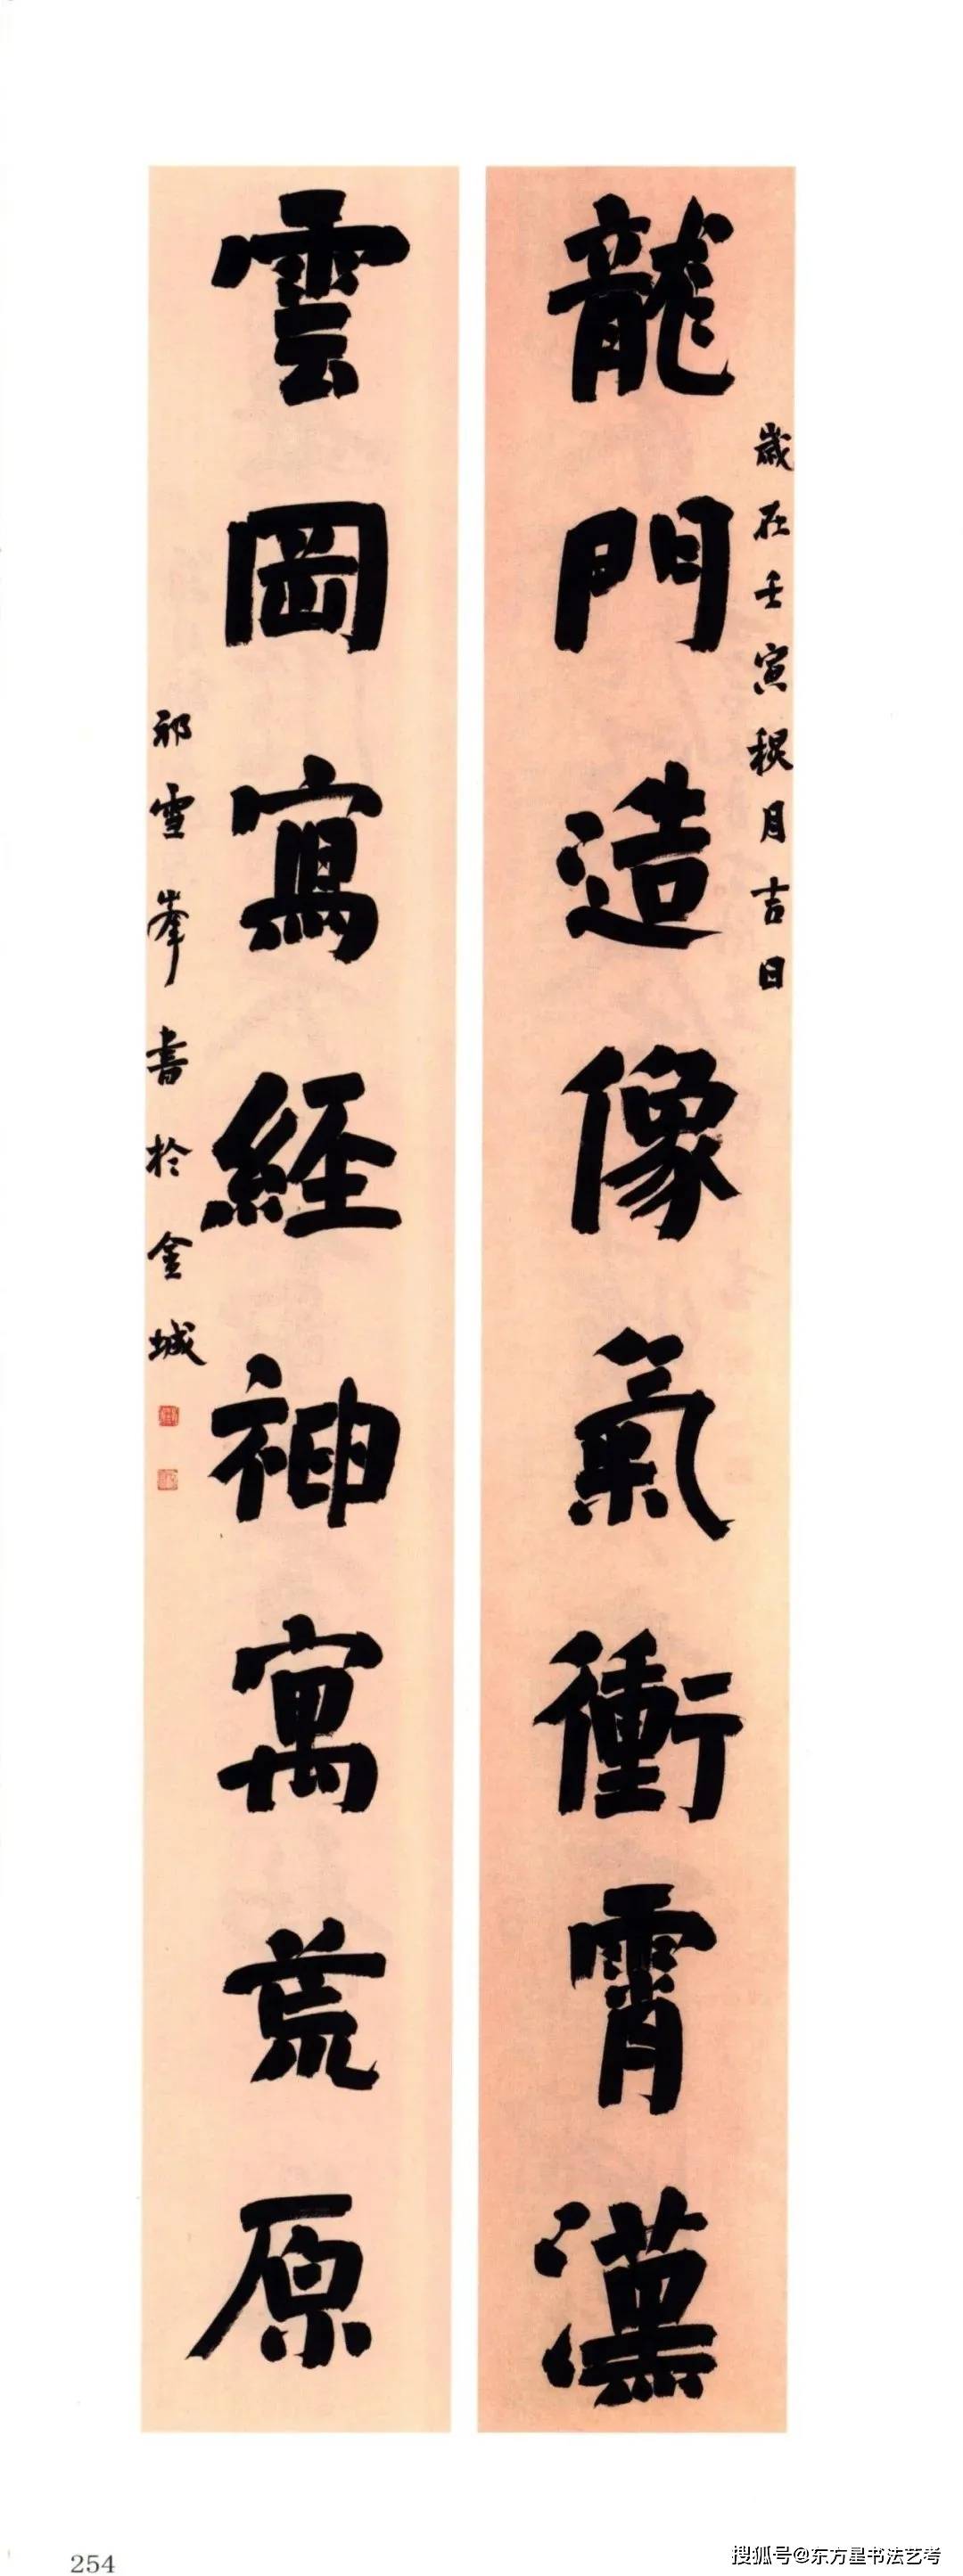 龍門造像氣衝霄漢
歲在壬寅秋月吉日
雲岡寫經神寓荒原
祁雪峯書於金城
254
搜狐号@东方星书法艺考